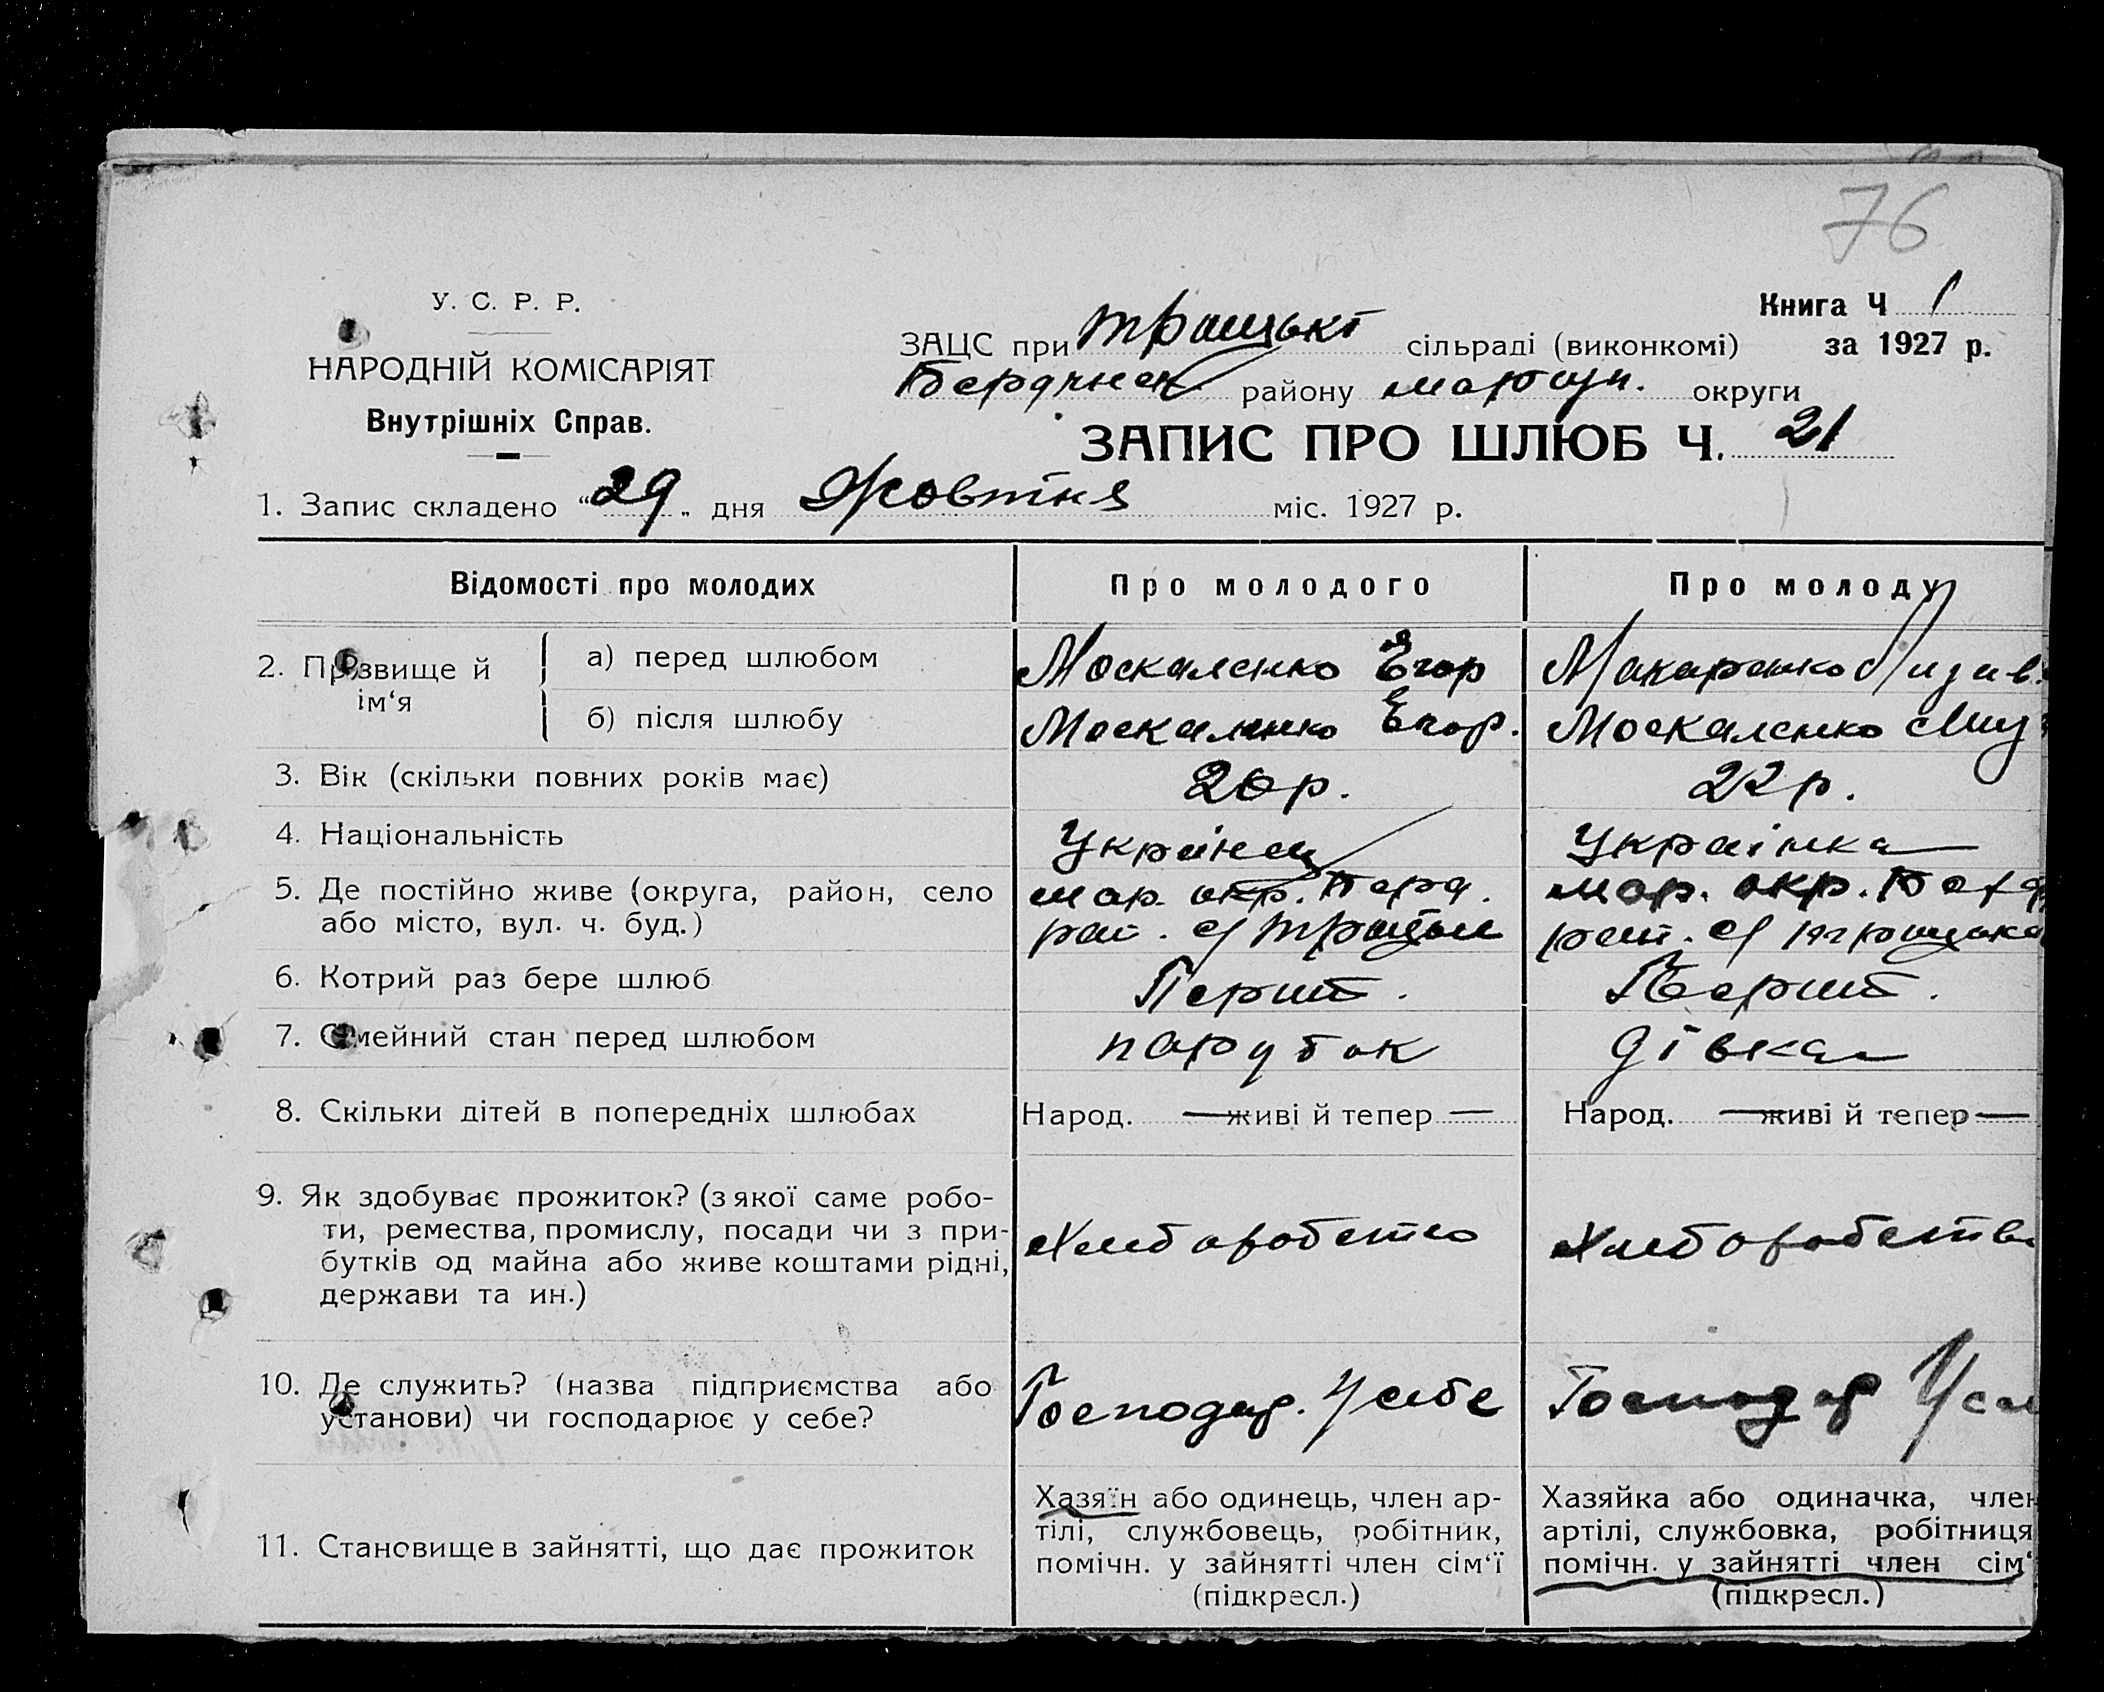 76
У. С. Р. Р.
НАРОДНІЙ КОМІСАРІЯТ
Внутрішніх Справ.
Книга Ч 1
ЗАЦС при Троицькі сільраді (виконкомі) за 1927 р.
Бердянск. району Маріуп. округи
ЗАПИС ПРО ШЛЮБ Ч. 21
1. Запис складено “29„ дня Жовтня міс. 1927 р.
Відомості про молодих Про молодого Про молоду
2. Прізвище й ім‘я
а) перед шлюбом Москаленко Егор Макаренко Лизав.
б) після шлюбу Москаленко Егор. Москаленко Лиз
3. Вік (скільки повних років має) 20 р. 22 р.
4. Національність Украінец Украінка
5. Де постійно живе (округа, район, село Мар. окр. Берд. Мар. окр. Берд
або місто, вул. ч. буд.) рай. с/
6. Котрий раз бере шлюб Перший. Перший.
7. Сімейний стан перед шлюбом парубок дівка
8. Скільки дітей в попередніх шлюбах Народ. — живі й тепер — Народ. — живі й тепер —
9. Як здобуває прожиток? (з якої саме робо-
ти, ремества, промислу, посади чи з при-
бутків од майна або живе коштами рідні,
держави та ин.)
Хлеборобство Хлеборобство
10. Де служить? (назва підприємства або
установи) чи господарює у себе?
Господар. У себе Господар У се
11. Становище в зайнятті, що дає прожиток
Хазяїн або одинець, член ар-
тілі, службовець, робітник,
помічн. у зайнятті член сім‘ї
(підкресл.)
Хазяйка або одиначка, член
артілі, службовка, робітниця
помічн. у зайнятті член сім‘
(підкресл.)